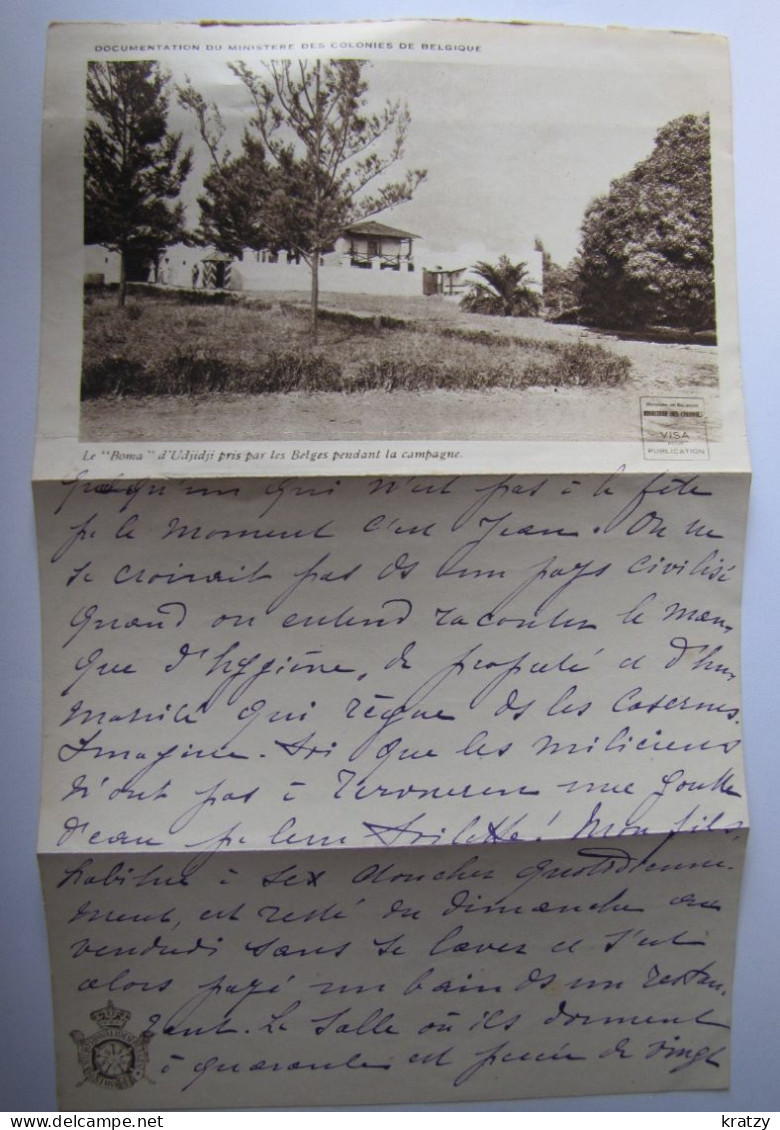 DOCUMENTATION DU MINISTERE DES COLONIES DE BELGIQUE
MINISTERE DES COLONIES
VISA
POUR
PUBLICATION
Le "Boma" d'Udjidji pris par les Belges pendant la campagne.
Quelqu'un qui n'est pas à la fête
pr le moment c'est Jean. On ne
se croirait pas ds un pays civilisé
quand on entend raconter le man-
que d'hygiène, de propreté et d'hu-
manité qui règne ds les casernes.
Imagine-toi que les miliciens
n'ont pas à une goutte
d'eau pr leur toilette! Mon fils,
habitué à ses douches quotidienne-
ment, est resté du dimanche au
vendredi sans se laver et s'est
alors payé un bain ds un restau-
rant. La salle où ils dorment
à quarante est percée de vingt
kratzy